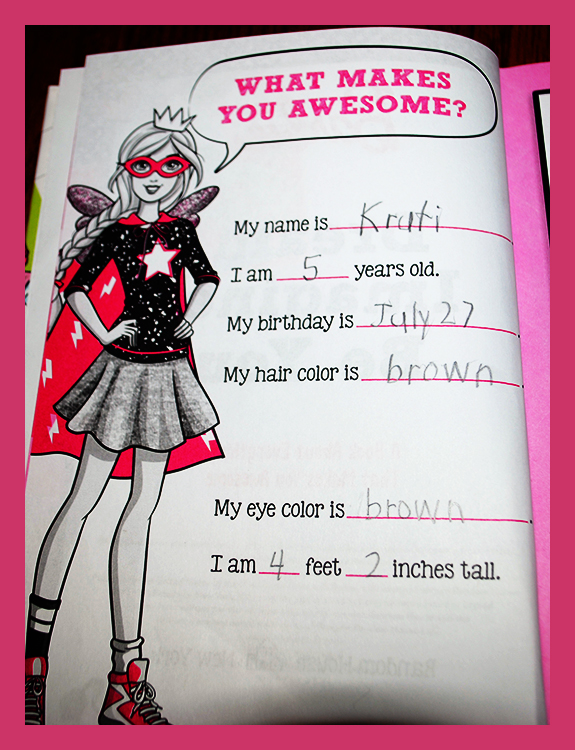 WHAT MAKES
YOU AWESOME?
My name is Kruti.
I am 5 years old.
My birthday is July 27.
My hair color is brown.
My eye color is brown.
I am 4 feet 2 inches tall.